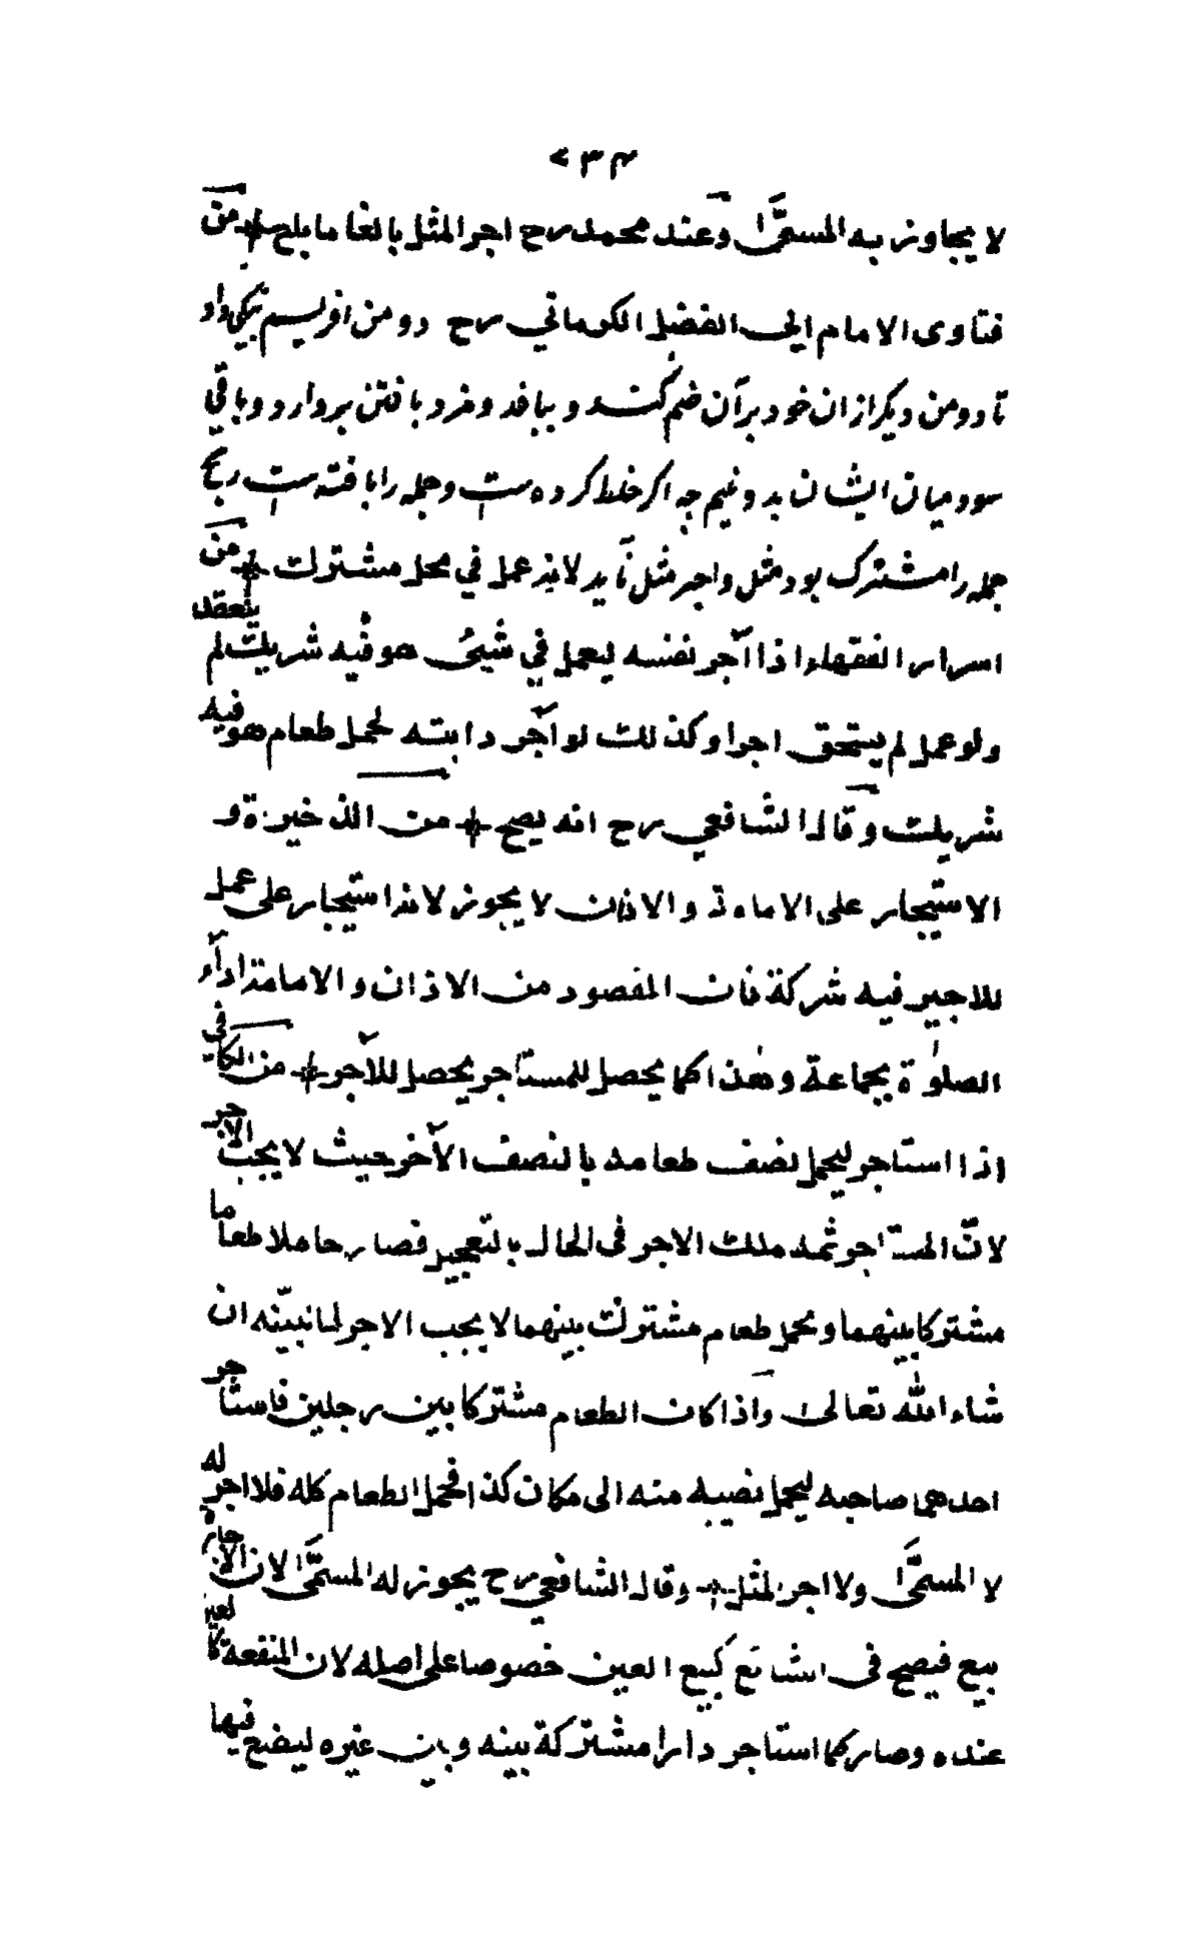 ٢٣٤
لا يجاوز به المسمّى وعند محمد رح اجر المثل بالغا ما بلغ من
فتاوى الامام ابي الفضل الكرماني رح دو من افريسم بيكي داد
تا دو من ديكر از ان خود بر آن ضم كند و ببافد و مزد بافتن بردارد و باقي
سود ميان ايشان بدو نيم چه اكر خلط كرده ست و جمله را بافته ست ريع
جمله را مشترك بود مثل و اجر مثل نايد لانه عمل في محل مشترك من
اسرار الفقهاء اذا آجر نفسه ليعمل في شيئ هو فيه شريك لم ينعقد
ولو عمل لم يستحق اجرا وكذلك لو آجر دابته لحمل طعام هو فيه
شريك وقال الشافعي رح انه يصح من الذخيرة و
الاستيجار على الامامة والاذان لا يجوز لانه استيجار على عمل
للاجير فيه شركة فان المقصود من الاذان والامامة اداء
الصلوٰة بجماعة وهٰذا كما يحصل للمستاجر يحصل للآجر من الكافي
اذا استاجر ليحمل نصف طعامه بالنصف الآخر حيث لا يجب الاجر
لانّ المستاجر ثمه ملك الاجر فى الحال بالتعجيل فصار حاملا طعاما
مشتركا بينهما وبحمل طعام مشترك بينهما لا يجب الاجر لما نبيّنه ان
شاء الله تعالى واذا كان الطعام مشتركا بين رجلين فاستاجر
احدهما صاحبه ليحمل نصيبه منه الى مكان كذا فحمل الطعام كله فلا اجر له
لا المسمّى ولا اجر المثل وقال الشافعي رح يجوز له المسمّى لان الاجارة
بيع فيصح فى الشائع كبيع العين خصوصا على اصله لان المنفعة كالعين
عنده وصار كما استاجر دارا مشتركة بينه وبين غيره ليضع فيها